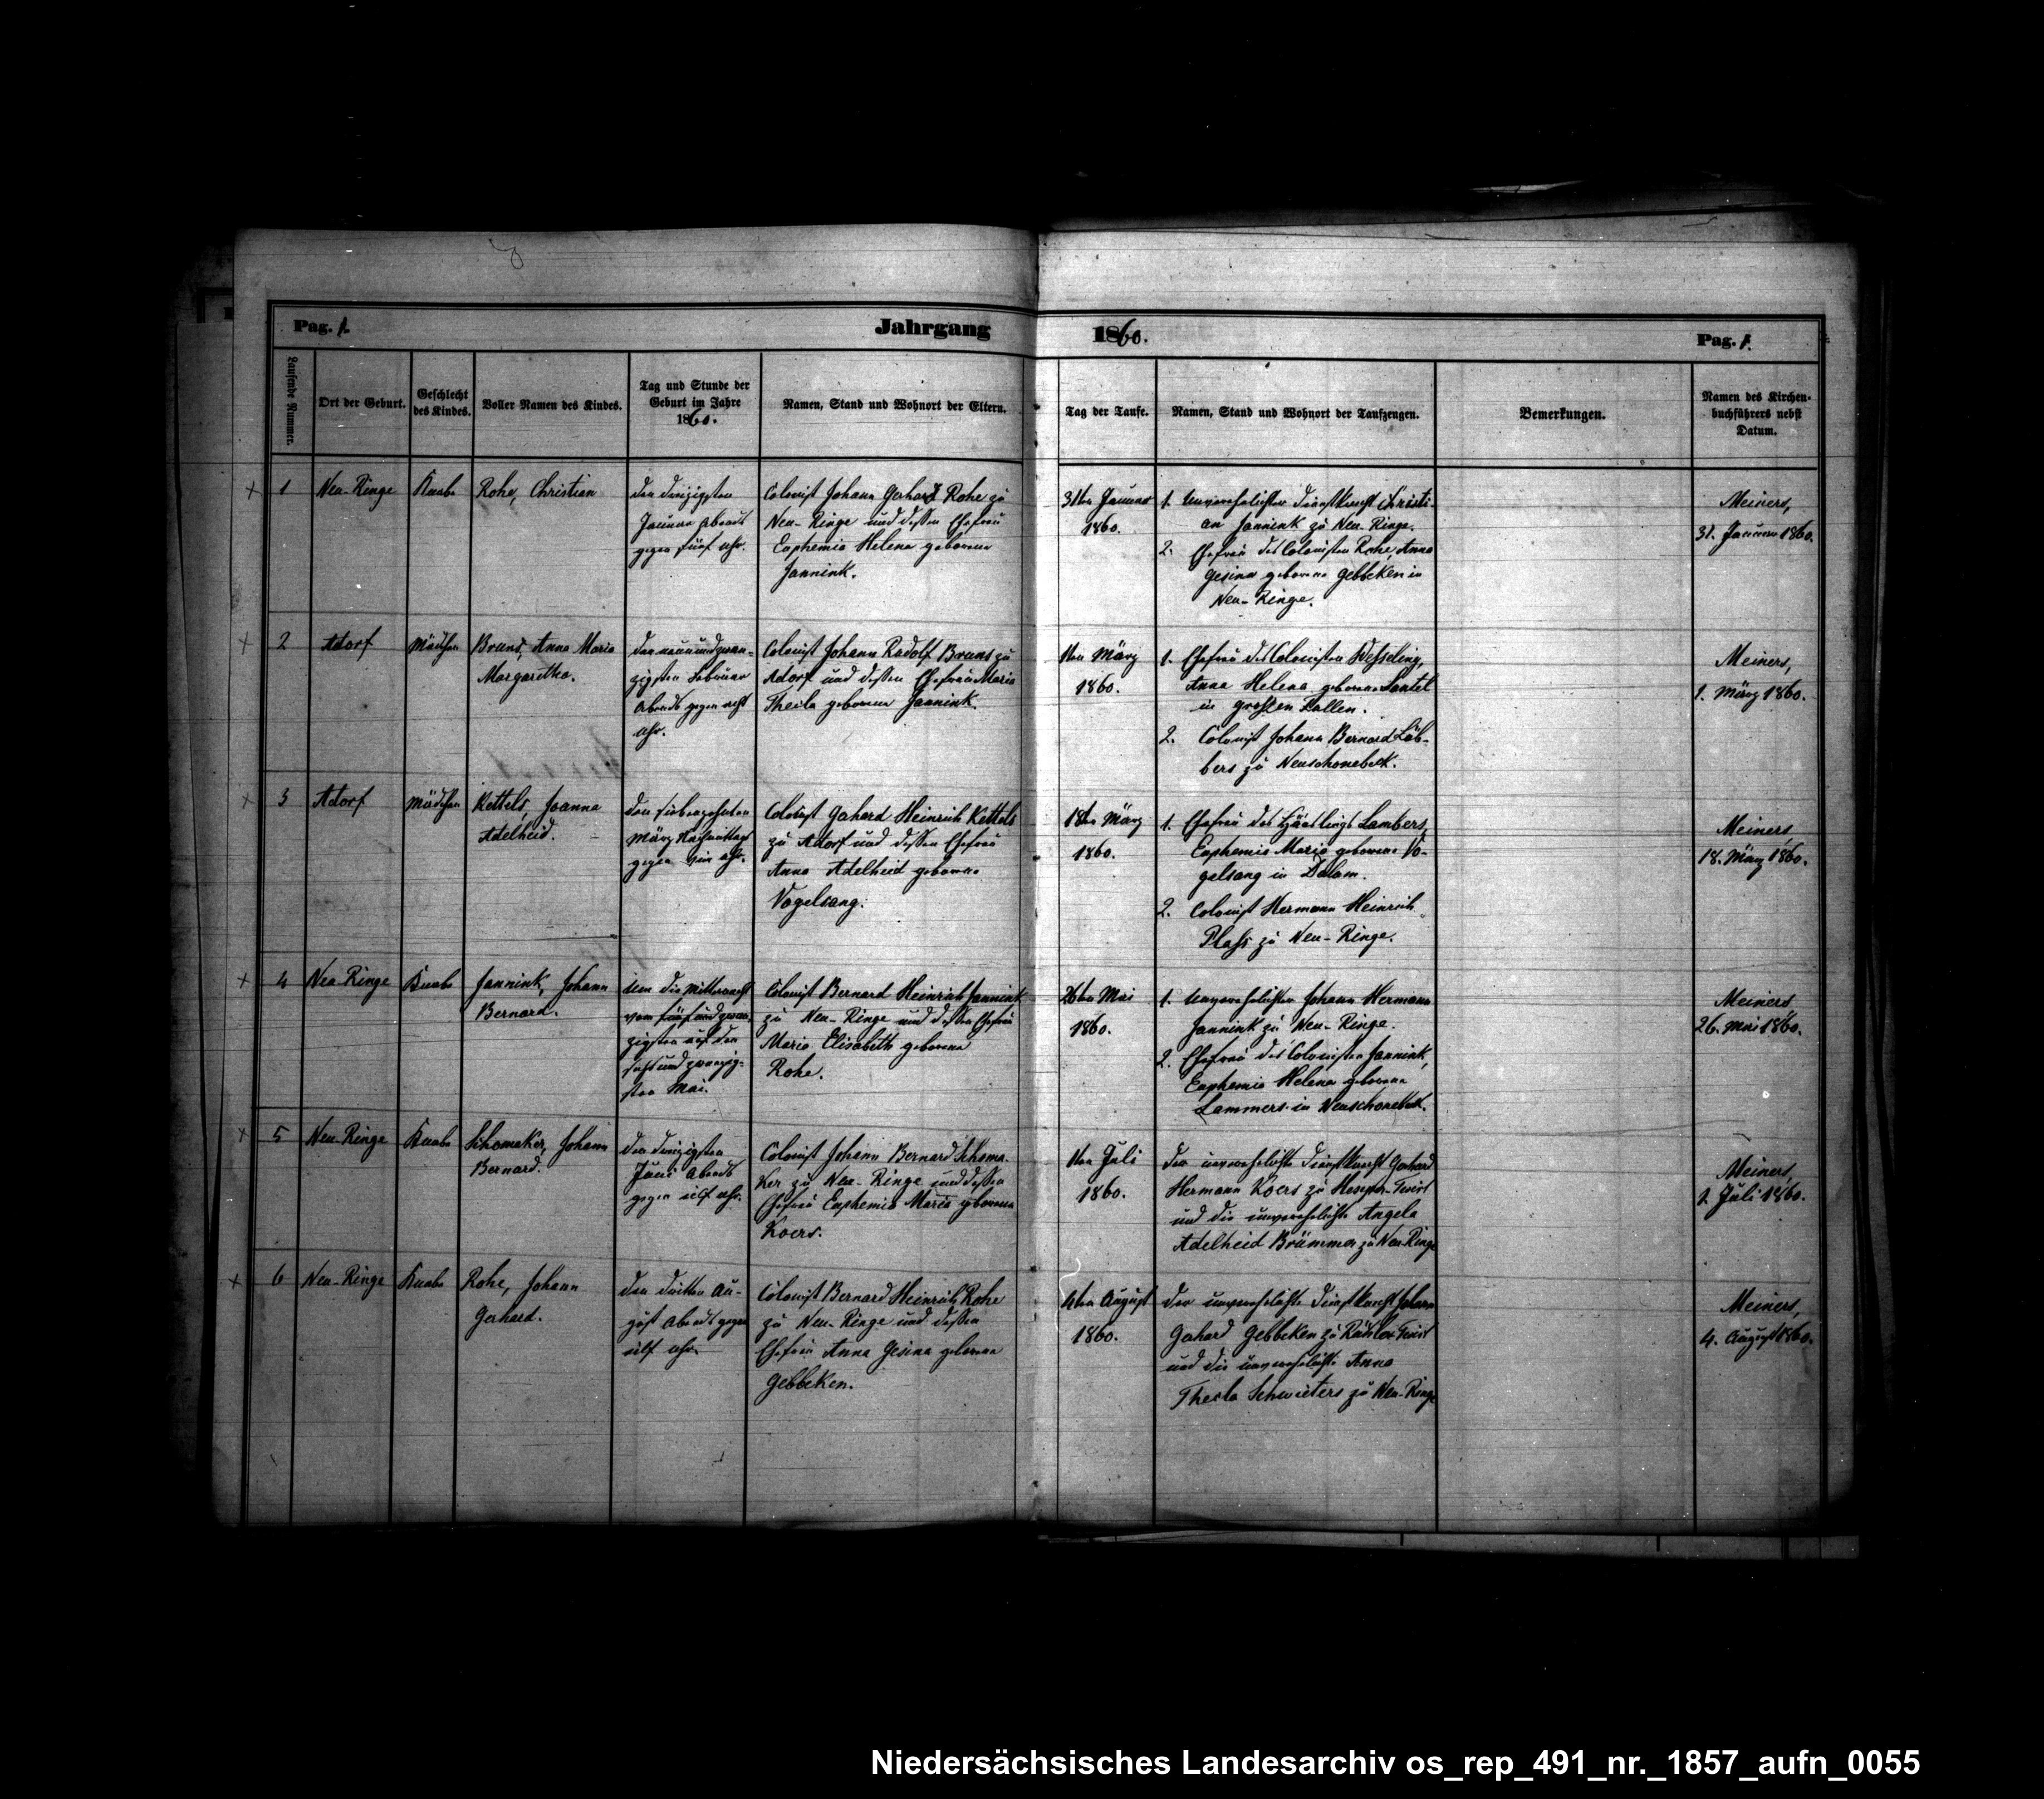 Pag. 1.
Jahrgang
1860.
Pag. 1.
Laufende Nummer.
Ort der Geburt.
Geschlecht
des Kindes.
Voller Namen des Kindes.
Tag und Stunde der
Geburt im Jahre
1860.
Namen, Stand und Wohnort der Eltern.
Tag der Taufe.
Namen, Stand und Wohnort der Taufzeugen.
Bemerkungen.
Namen des Kirchen-
buchführers nebst
Datum.
1
Neu-Ringe
Knabe
Rohe, Christian
den dreizigsten
Januar Abends
gegen fünf Uhr.
Colonist Johann Gerhard Rohe zu
Neu-Ringe und dessen Ehefrau
Euphemia Helena geborene
Jannink.
31ten Januar
1860.
1. Unverehelichter Dienstknecht Christi-
an Jannink zu Neu-Ringe.
2. Ehefrau des Colonisten Rohe, Anna
Gesina geborene Gebbeken in
Neu-Ringe.
Meiners,
31. Januar 1860.
2
Adorf
Mädchen
Bruns, Anna Maria
Margaretha.
den neunundzwan-
zigsten Februar
Abends gegen acht
Uhr.
Colonist Johann Rudolf Bruns zu
Adorf und dessen Ehefrau Maria
Thecla geborene Jannink.
1ten März
1860.
1. Ehefrau des Colonisten Wesseling,
Anna Helena geborene Santel
in grossen Fullen.
2. Colonist Johann Bernard Löb-
bers zu Neuschonebeck.
Meiners,
1. März 1860.
3
Adorf
Mädchen
Kettels, Joanna
Adelheid.
den siebenzehnten
März Nachmittags
gegen vier Uhr.
Colonist Gerhard Heinrich Kettels
zu Adorf und dessen Ehefrau
Anna Adelheid geborene
Vogelsang.
18ten März
1860.
1. Ehefrau des Häuslings Lambers,
Euphemia Maria geborene Vo-
gelsang in Dalum.
2. Colonist Hermann Heinrich
Plass zu Neu-Ringe.
Meiners,
18. März 1860.
4
Neu-Ringe
Knabe
Jannink, Johann
Bernard.
Um die Mitternacht
vom fünfundzwan-
zigsten auf den
sechsundzwanzig-
sten Mai.
Colonist Bernard Heinrich Jannink
zu Neu-Ringe und dessen Ehefrau
Maria Elisabeth geborene
Rohe.
26ten Mai
1860.
1. Unverehelichter Johann Hermann
Jannink zu Neu-Ringe.
2. Ehefrau des Colonisten Jannink,
Euphemia Helena geborene
Lammers in Neuschonebeck.
Meiners,
26. Mai 1860.
5
Neu-Ringe
Knabe
Schomaker, Johann
Bernard.
den dreizigsten
Juni Abends
gegen elf Uhr.
Colonist Johann Bernard Schoma-
ker zu Neu-Ringe und dessen
Ehefrau Euphemia Maria geborene
Koers.
1ten Juli
1860.
der unverehelichte Dienstknecht Gerhard
Hermann Koers zu Hesepe-Twist
und die unverehelichte Angela
Adelheid Brümmer zu Neu-Ringe
Meiners,
1. Juli 1860.
6
Neu-Ringe
Knabe
Rohe, Johann
Gerhard.
den dritten Au-
gust Abends gegen
elf Uhr.
Colonist Bernard Heinrich Rohe
zu Neu-Ringe und dessen
Ehefrau Anna Gesina geborene
Gebbeken.
4ten August
1860.
der unverehelichte Dienstknecht Johann
Gerhard Gebbeken zu Rühler Twist
und die unverehelichte Anna
Thecla Schwieters zu Neu-Ringe
Meiners,
4. August 1860.
Niedersächsisches Landesarchiv os_rep_491_nr._1857_aufn_0055